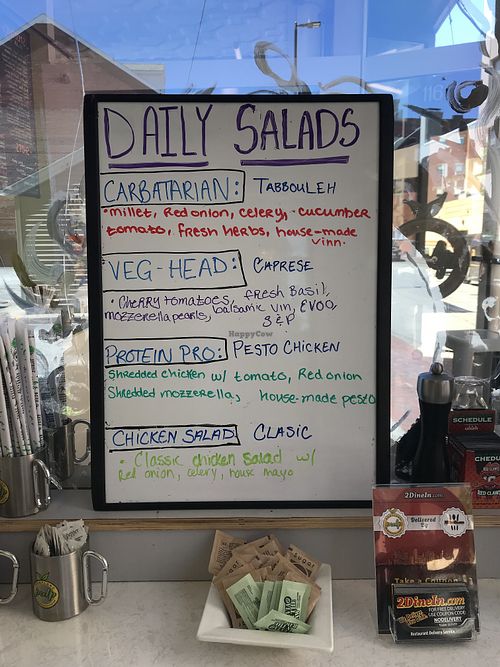 DAILY SALADS
CARBATARIAN: TABBOULEH
• millet, Red onion, celery, cucumber
tomato, fresh herbs, house-made
vinn.
VEG-HEAD: CAPRESE
• Cherry tomatoes, fresh Basil,
mozzerella pearls, balsamic vin, EVOO,
S & P
HappyCow
PROTEIN PRO: PESTO CHICKEN
Shredded chicken w/ tomato, Red onion
Shredded mozzerella, house-made pesto
CHICKEN SALAD CLASIC
• Classic chicken salad w/
red onion, celery, house mayo
SCHEDULE
2DineIn.com
Delivered
By
Take a Coupon
2DineIn.com
FOR FREE DELIVERY
USE COUPON CODE
NODELIVERY
Restaurant Delivery Service